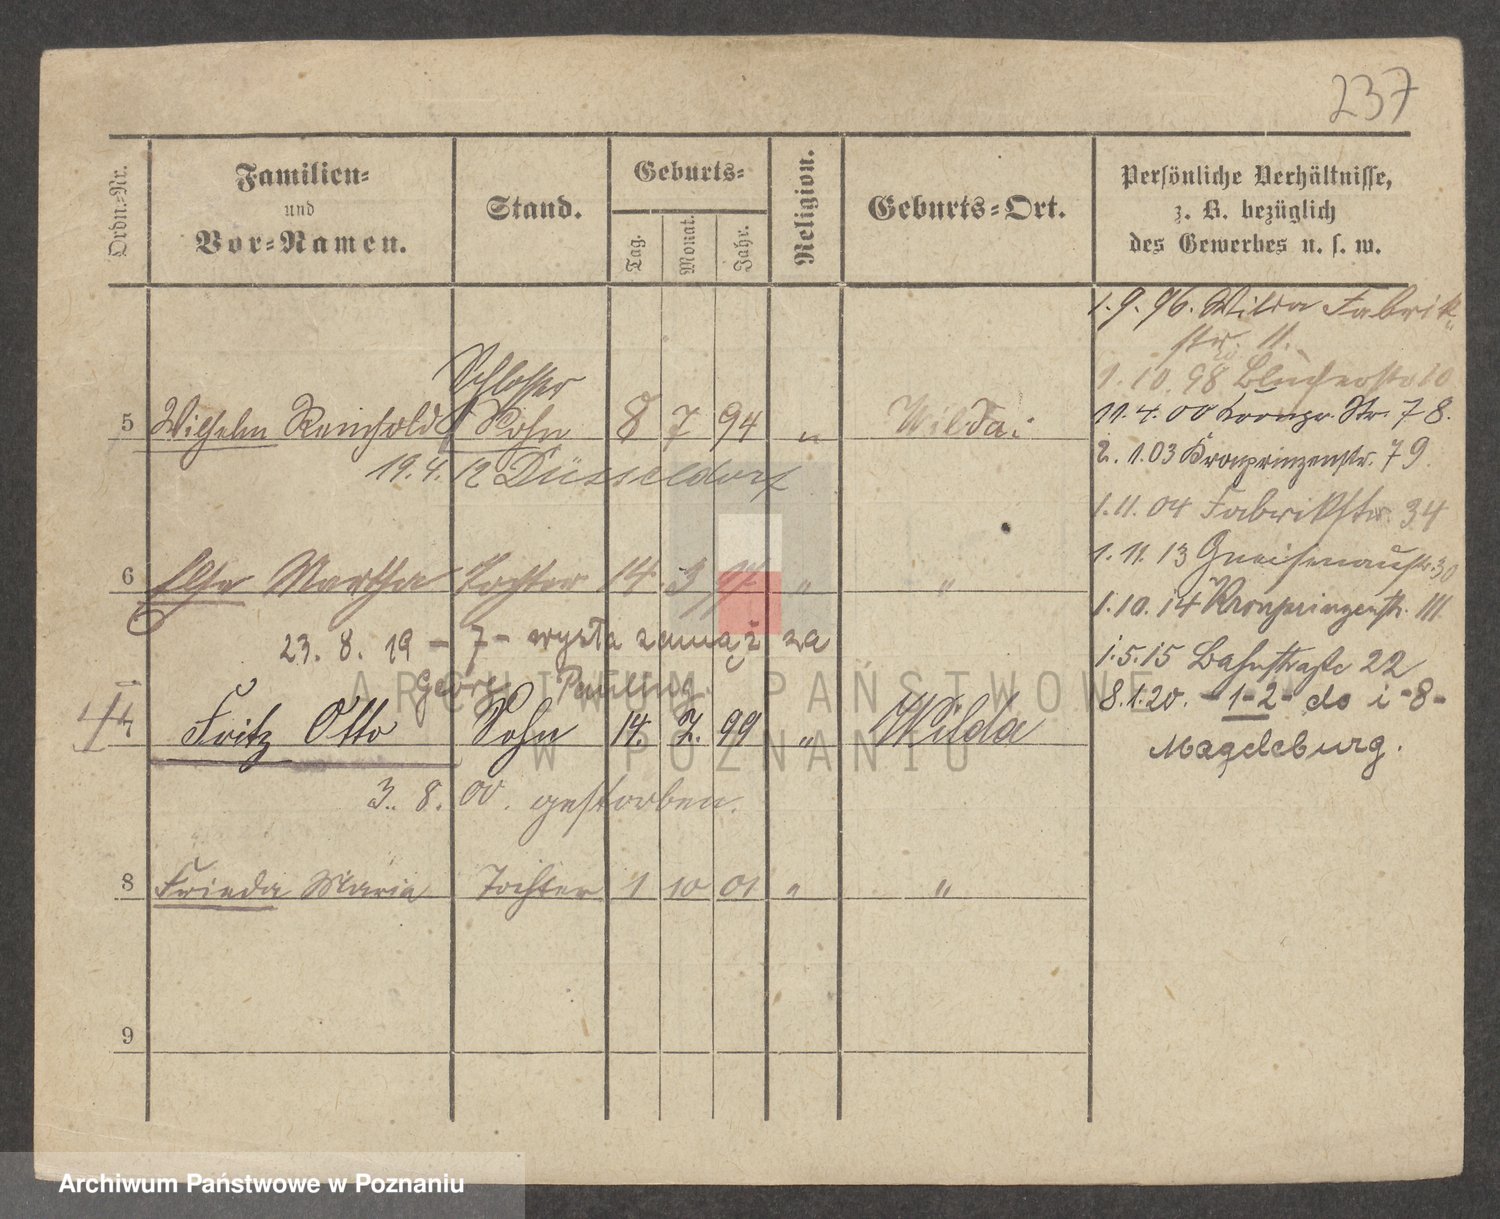 237
Ordn.-Nr.
Familien-
und
Vor-Namen.
Stand.
Geburts-
Tag.
Monat.
Jahr.
Religion.
Geburts-Ort.
Persönliche Verhältnisse,
z. B. bezüglich
des Gewerbes u. s. w.
1.9.96. Wilda Fabrik-
str. 11.
1.10.98 Blücherstr 20
11.4.00 Kronpr. Str. 78.
2.1.03 Kronprinzenstr. 79.
1.11.04 Fabrikstr. 34
1.11.13 Gneisenaustr. 30
1.10.14 Kronprinzenstr. 111
1.5.15 Bahnstraße 22
8.1.20. -1-2- do i -8-
Magdeburg.
Schlosser
5 Wilhelm Reinhold Sohn 8 7 94 " Wilda
19.4.12 Düsseldorf
6 Else Martha Tochter 14. 3 97 " "
23. 8. 19 - 7 - wyszła zamąż za
Georg Pauling.
7 Fritz Otto Sohn 14. 7. 99 " Wilda
3. 8. 00. gestorben.
8 Frieda Maria Tochter 1 10 01 " "
9
ARCHIWUM PAŃSTWOWE
W POZNANIU
Archiwum Państwowe w Poznaniu